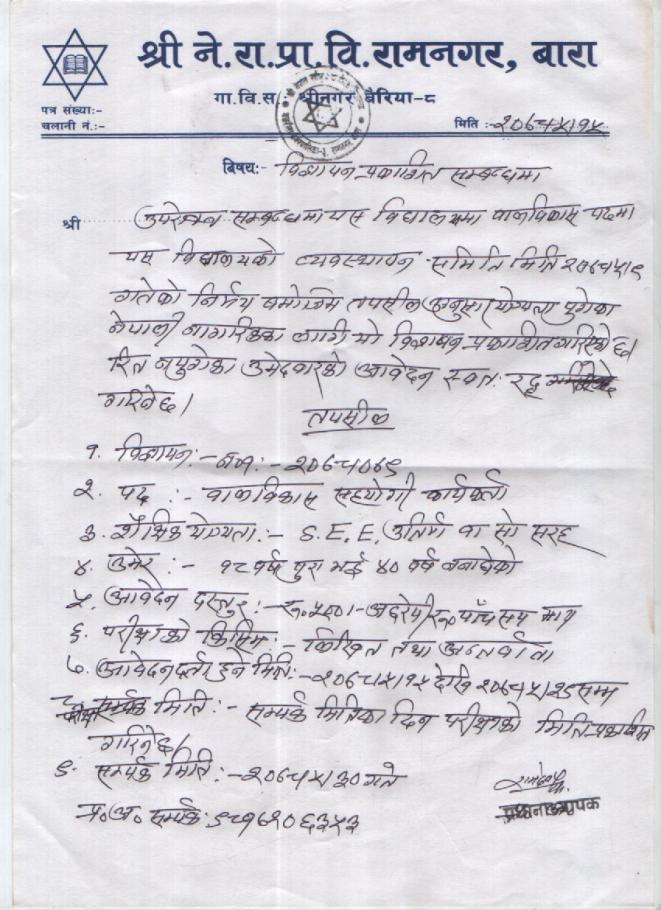 श्री ने.रा.प्रा.वि.रामनगर, बारा
गा.वि.स. श्रीनगर बैरिया-८
पत्र संख्याः-
चलानी नं.:-
मिति :- २०७८।५।१५
बिषय:- विज्ञापन प्रकाशित सम्बन्धमा
श्री उपरोक्त सम्बन्धमा यस विद्यालयमा बालविकास पदमा
यस विद्यालयको व्यवस्थापन समिति मिति २०७८।५।९
गतेको निर्णय बमोजिम तपसील अनुसार योग्यता पुगेका
नेपाली नागरिकका लागी यो विज्ञापन प्रकाशीत गरिएको छ।
रित नपुगेका उमेदवारको आवेदन स्वतः रद्द
गरिनेछ।
तपसील
१. विज्ञापन:- नं.:- २०७८।०७९
२. पद :- बालविकास सहयोगी कार्यकर्ता
३. शैक्षिक योग्यता:- S.E.E. उतिर्ण वा सो सरह
४. उमेर :- १८ वर्ष पुरा भई ४० वर्ष ननाघेको
५. आवेदन दस्तुर:- रु. ५००।- अक्षरेपी रु. पाँच सय मात्र
६. परीक्षाको किसिम:- लिखित तथा अन्तर्वार्ता
७. आवेदन दर्ता हुने मिति:- २०७८।५।१५ देखि २०७८।५।२९ सम्म
८. मिति:- सम्पर्क मितिका दिन परीक्षाको मिति प्रकाशित
गरिनेछ।
९. सम्पर्क मिति:- २०७८।५।३० गते
प्र.अ. सम्पर्क: ९८१७२०६३५३
प्रधानाध्यापक